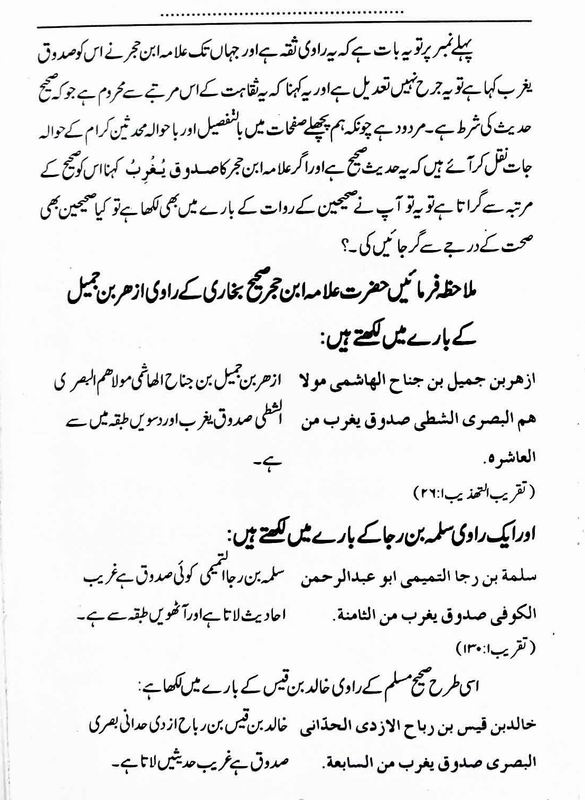 پہلے نمبر پر تو یہ بات ہے کہ یہ راوی ثقہ ہے اور جہاں تک علامہ ابن حجر نے اس کو صدوق
یغرب کہا ہے تو یہ جرح نہیں تعدیل ہے اور یہ کہنا کہ یہ ثقاہت کے اس مرتبے سے محروم ہے جو کہ صحیح
حدیث کی شرط ہے۔ مردود ہے چونکہ ہم پچھلے صفحات میں بالتفصیل اور باحوالہ محدثین کرام کے حوالہ
جات نقل کر آئے ہیں کہ یہ حدیث صحیح ہے اور اگر علامہ ابن حجر کا صدوق یُغْرِبُ کہنا اس کو صحیح کے
مرتبہ سے گراتا ہے تو یہ تو آپ نے صحیحین کے روات کے بارے میں بھی لکھا ہے تو کیا صحیحین بھی
صحت کے درجے سے گر جائیں کی ۔؟
ملاحظہ فرمائیں حضرت علامہ ابن حجر صحیح بخاری کے راوی ازھر بن جمیل
کے بارے میں لکھتے ہیں:
ازھر بن جمیل بن جناح الھاشمی مولا
ھم البصری الشطی صدوق یغرب من
العاشرہ.
(تقریب التھذیب ۱:۲۶)
ازھر بن جمیل بن جناح الھاشمی مولاھم البصری
الشطی صدوق یغرب اور دسویں طبقہ میں سے
ہے۔
اور ایک راوی سلمہ بن رجا کے بارے میں لکھتے ہیں:
سلمة بن رجا التمیمی ابو عبدالرحمن
الکوفی صدوق یغرب من الثامنة.
(تقریب ۱:۱۳۰)
سلمہ بن رجا التمیمی کوئی صدوق ہے غریب
احادیث لاتا ہے اور آٹھویں طبقہ سے ہے۔
اسی طرح صحیح مسلم کے راوی خالد بن قیس کے بارے میں لکھا ہے:
خالدبن قیس بن رباح الازدی الحدّانی
البصری صدوق یغرب من السابعة.
خالد بن قیس بن رباح ازدی حدانی بصری
صدوق ہے غریب حدیثیں لاتا ہے۔